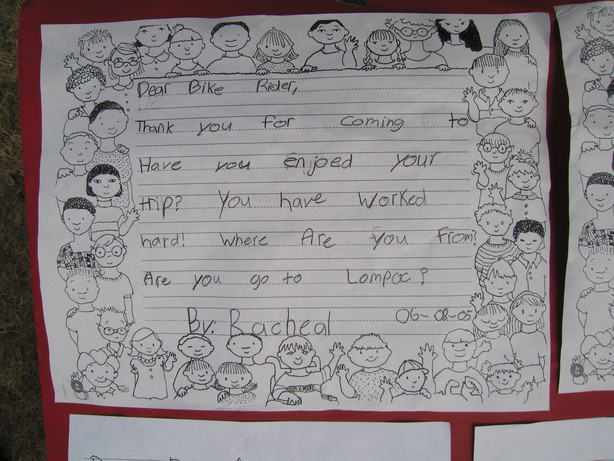 Dear Bike Rider,
Thank you for coming to
Have you enjoed your
trip? You have worked
hard! Where Are you From!
Are you go to Lompoc?
By: Racheal 06-08-05